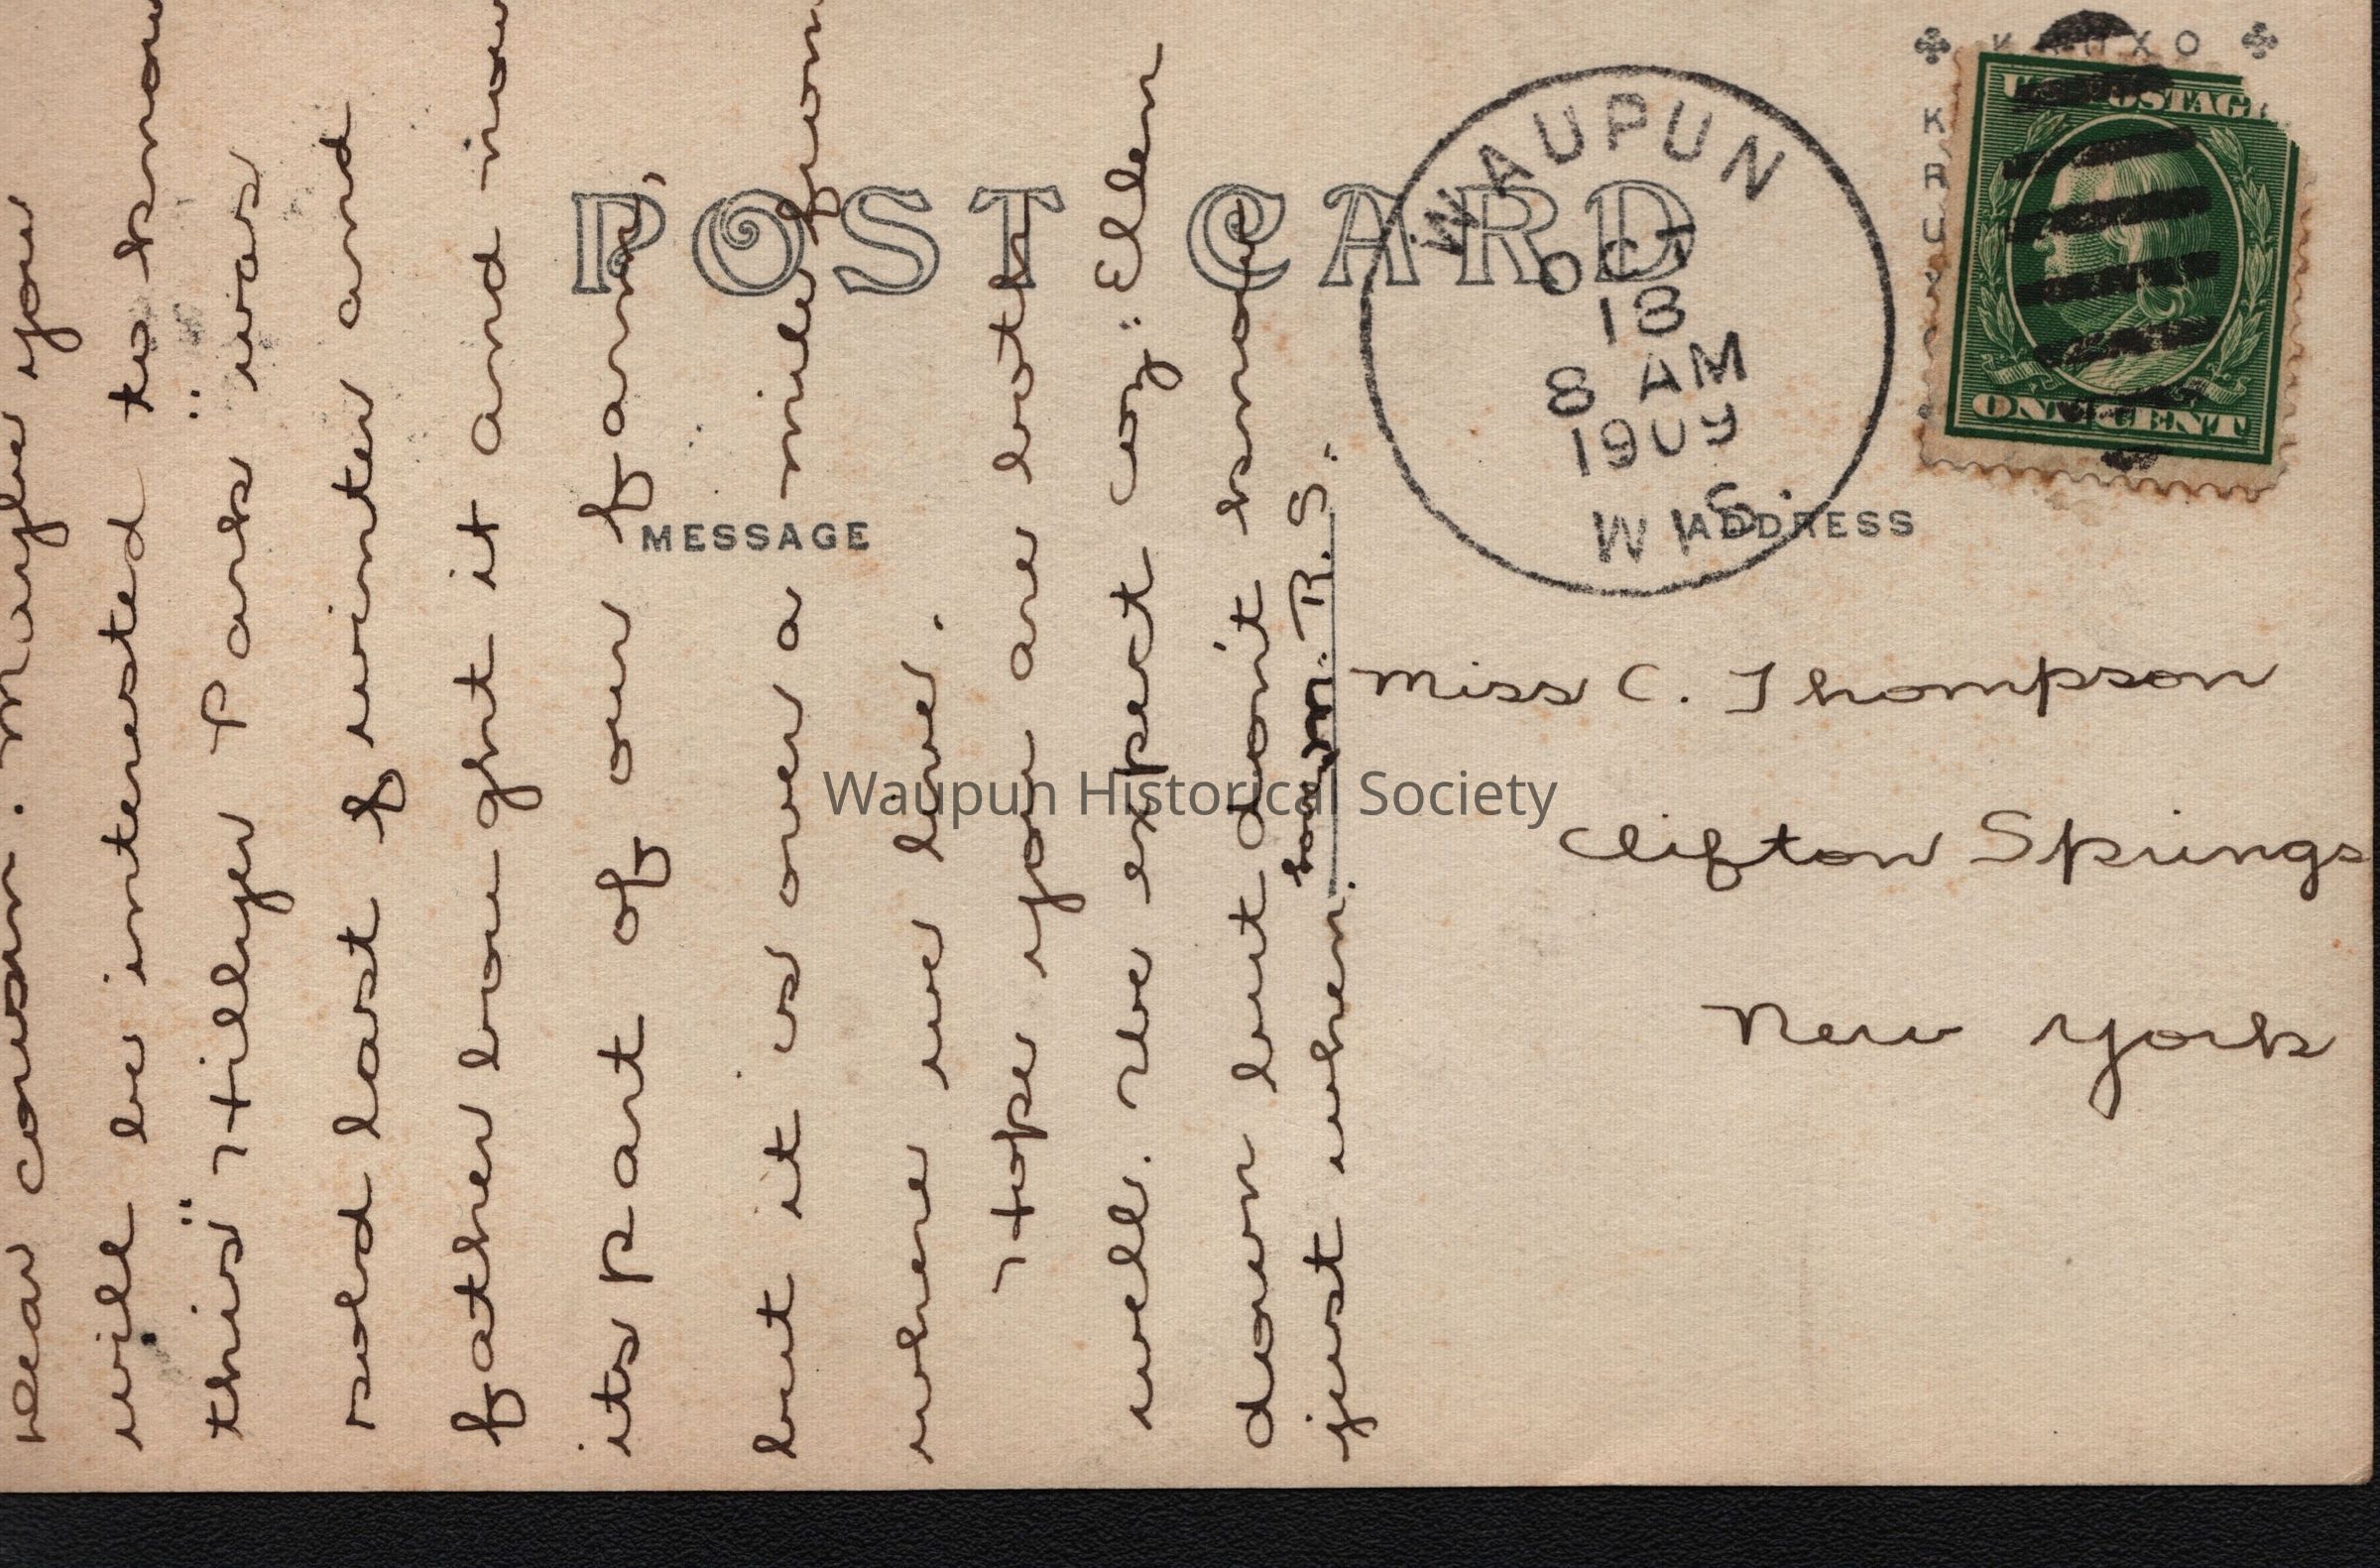 Dear cousin. Maybe you
will be interested to know
this "Hillyer Park" was
sold last of winter and
father bought it and now
its part of our farm,
but it is over a mile from
where we live.
Hope you are both
well. We expect coz: Ellen
down but don't know
just when.
M. R. S.
POST CARD
MESSAGE
ADDRESS
WAUPUN
OCT
18
8 AM
1909
WIS.
U.S. POSTAGE
ONE CENT
Miss C. Thompson
Clifton Springs
New York
Waupun Historical Society